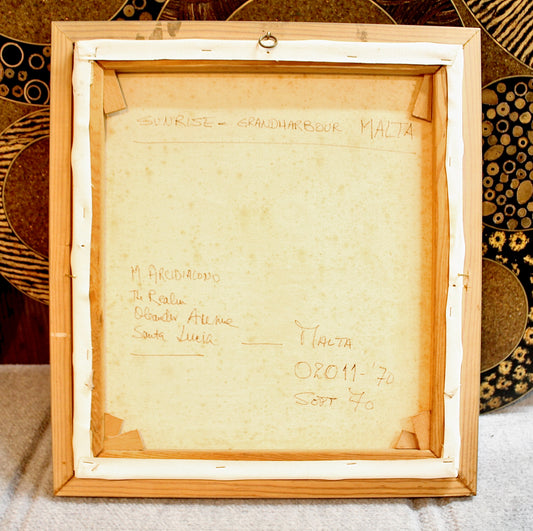 SUNRISE - GRANDHARBOUR MALTA
M. ARCIDIACONO
The Realm
Oleander Avenue
Santa Lucia
MALTA
02011-'70
SEPT '70